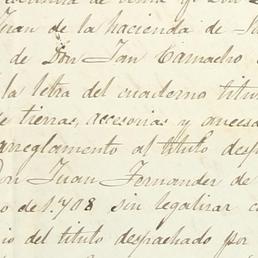 Juan de la hacienda de
de Don Jan Camacho
la letra del cuaderno titu
e tierras, accesorias y anecsa
arreglamento al titulo desp
Don Juan Fernandez de
o de 1.708 sin legalizar c
io del titulo despachado por